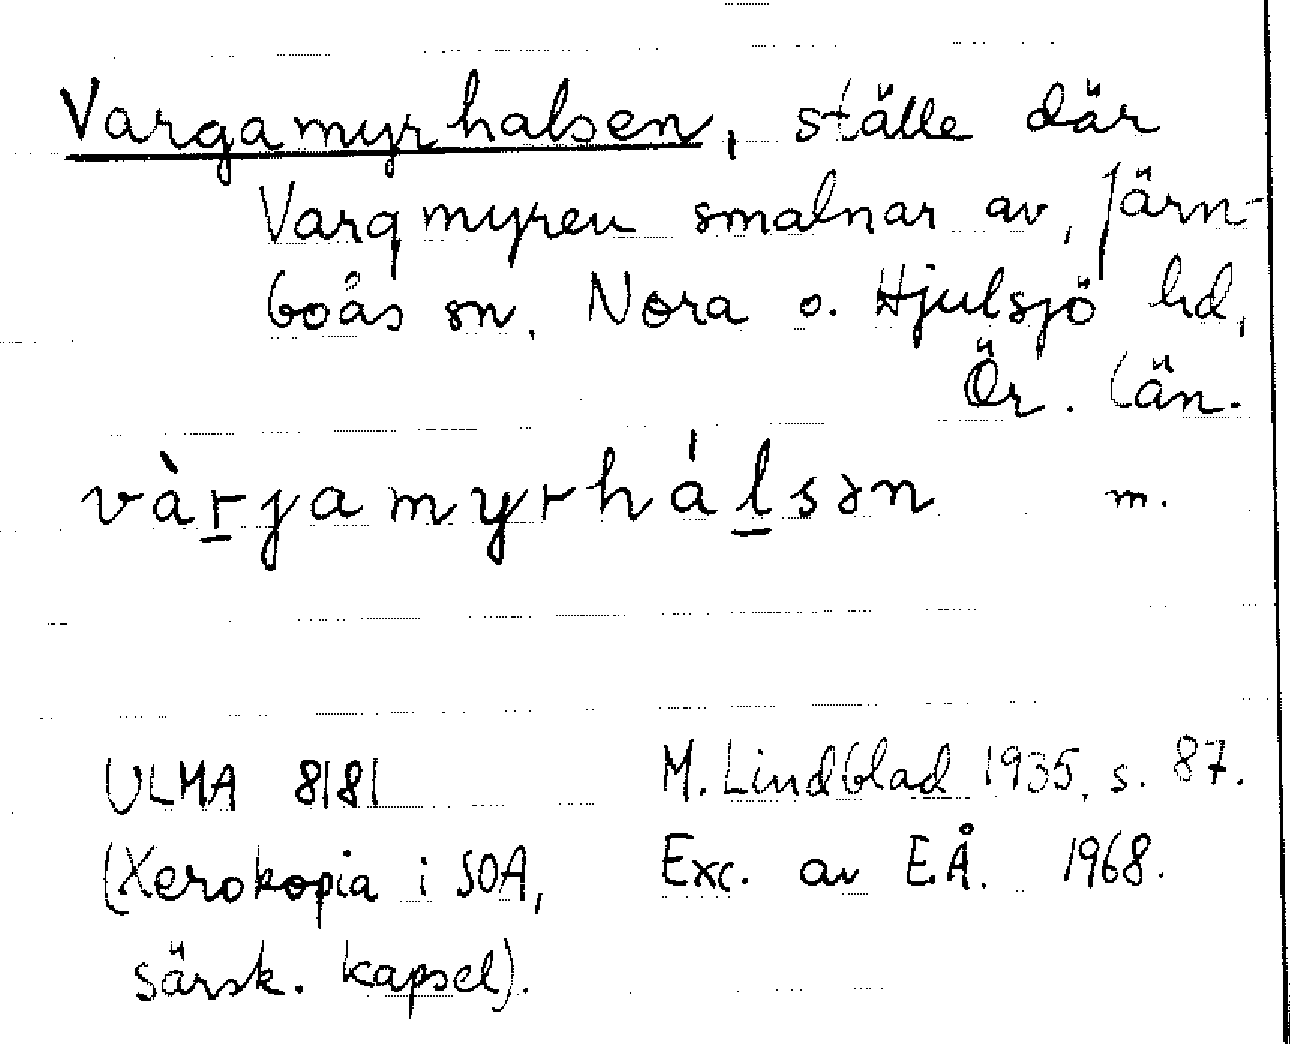 Vargamyrhalsen, ställe där
Vargmyren smalnar av, Järn-
boås sn, Nora o. Hjulsjö hd,
Ör. län.
vàr̲jamyrhál̲sən m.
ULMA 8181 M. Lindblad 1935, s. 87.
(Xerokopia i SOA, Exc. av E.Å. 1968.
särsk. kapsel).